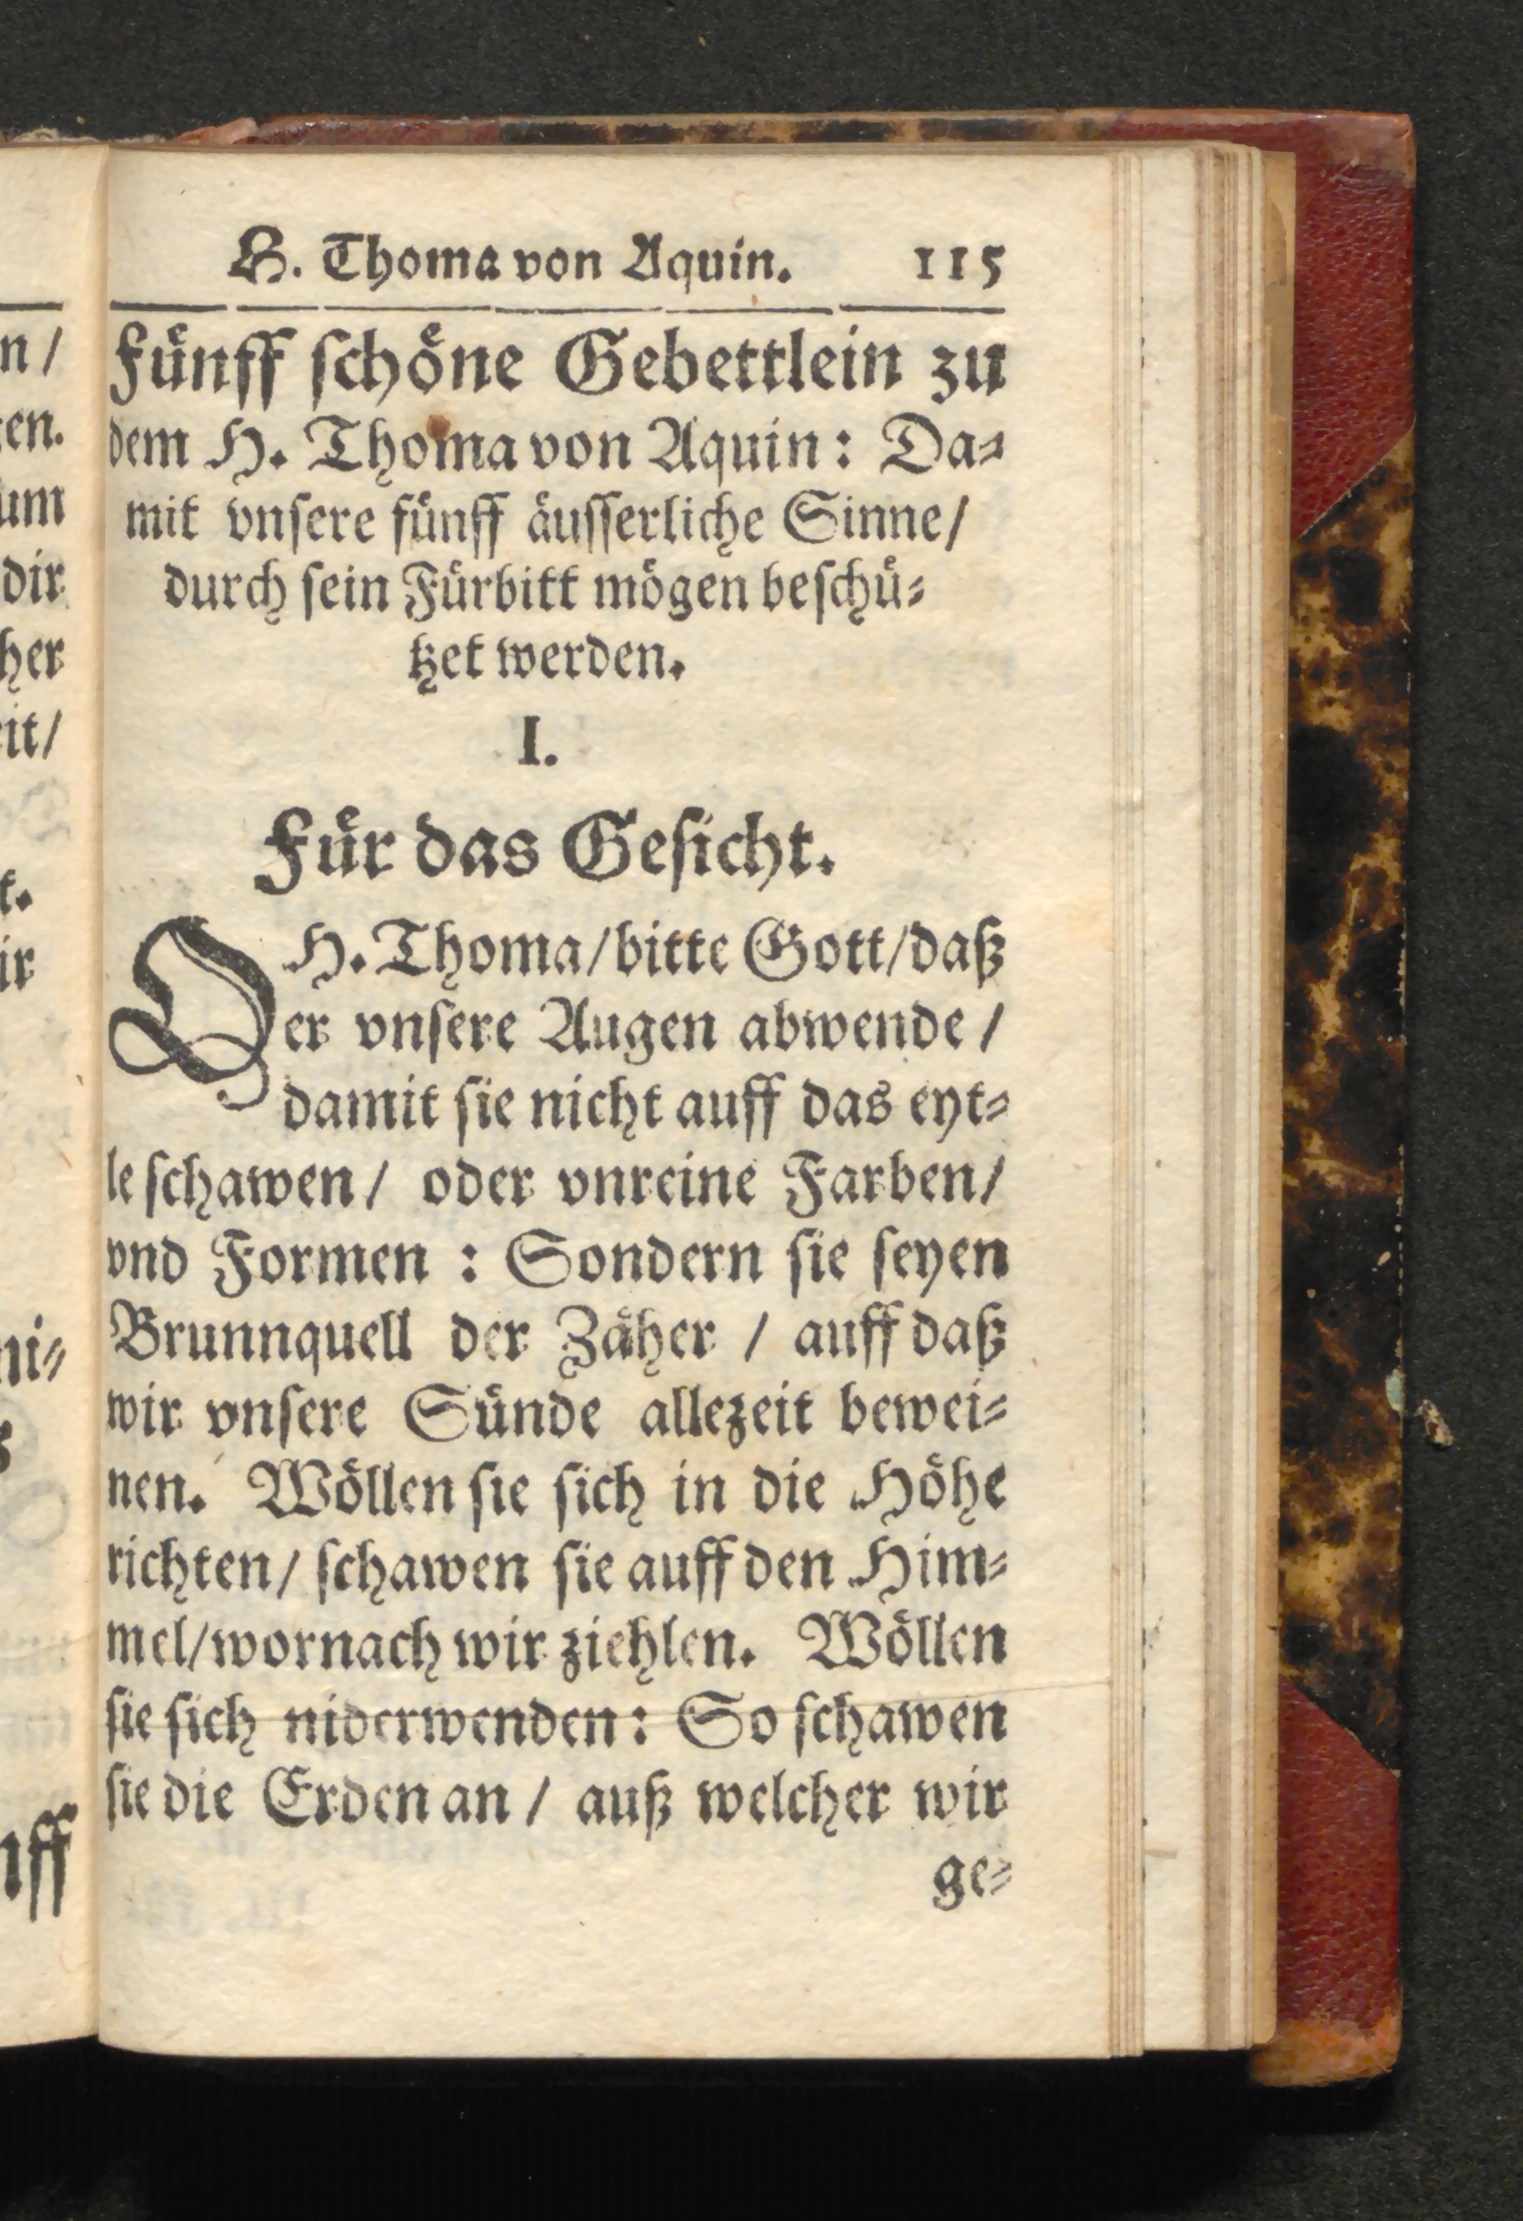 H. Thoma von Aquin. 115
Fünff schöne Gebettlein zu
dem H. Thoma von Aquin: Da-
mit vnsere fünff äusserliche Sinne/
durch sein Fürbitt mögen beschü-
tzet werden.
I.
Für das Gesicht.
O H. Thoma/bitte Gott/daß
er vnsere Augen abwende /
damit sie nicht auff das eyt-
le schawen/ oder vnreine Farben/
vnd Formen : Sondern sie seyen
Brunnquell der Zäher / auff daß
wir vnsere Sünde allezeit bewei-
nen. Wöllen sie sich in die Höhe
richten/ schawen sie auff den Him-
mel/wornach wir ziehlen. Wöllen
sie sich niderwenden: So schawen
sie die Erden an / auß welcher wir
ge-